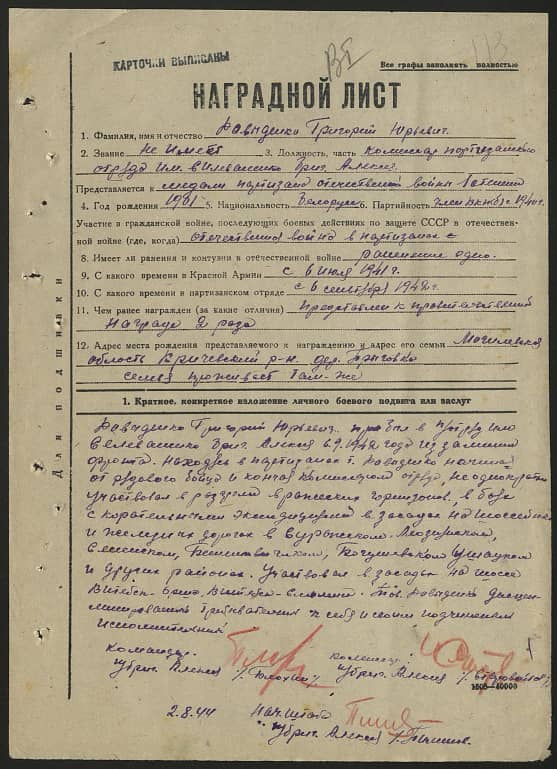 КАРТОЧКИ ВЫПИСАНЫ
113
Все графы заполнять полностью
НАГРАДНОЙ ЛИСТ
1. Фамилия, имя и отчество Давыденко Григорий Юрьевич.
2. Звание не имеет 3. Должность, часть комиссар партизанского
отряда бриг. Алексея
Представляется к медали партизана отечественной войны I степени
4. Год рождения 1901 5. Национальность Белорус 6. Партийность
Участие в гражданской войне, последующих боевых действиях по защите СССР в отечествен-
ной войне (где, когда) отечественная война в партизанах с
8. Имеет ли ранения и контузии в отечественной войне ранение одно.
9. С какого времени в Красной Армии с 6 июля 1941 г.
10. С какого времени в партизанском отряде с 6 сентября 1942 г.
11. Чем ранее награжден (за какие отличия) представлен к правительственной
награде 2 раза
12. Адрес места рождения представляемого к награждению и адрес его семьи Могилевская
область Кричевский р-н. дер.
семья проживает там-же
Для подшивки
1. Краткое, конкретное изложение личного боевого подвига или заслуг
Давыденко Григорий Юрьевич прибыл в п/отряд им.
бриг. Алексея 6.9.1942 года из за линии
фронта. Находясь в партизанах т. Давыденко начиная
от рядового бойца и кончая комиссаром отряда, неоднократно
участвовал в разгроме вражеских гарнизонов, в боях
с карательными экспедициями в засадах на шоссейных
и железных дорогах в Суражском, Лиозненском,
Сенненском, Бешенковичском, Ушачском
и других районах. Участвовал в засадах на шоссе
Витебск- Витебск-
Тов. Давыденко дисцип-
линирован, требователен к себе и своим подчиненным
исполнительный
Командир
п/бриг. Алексея /Блохин/
комиссар
п/бриг. Алексея
1800—40000
2.8.44
Нач. штаба
п/бриг. Алексея